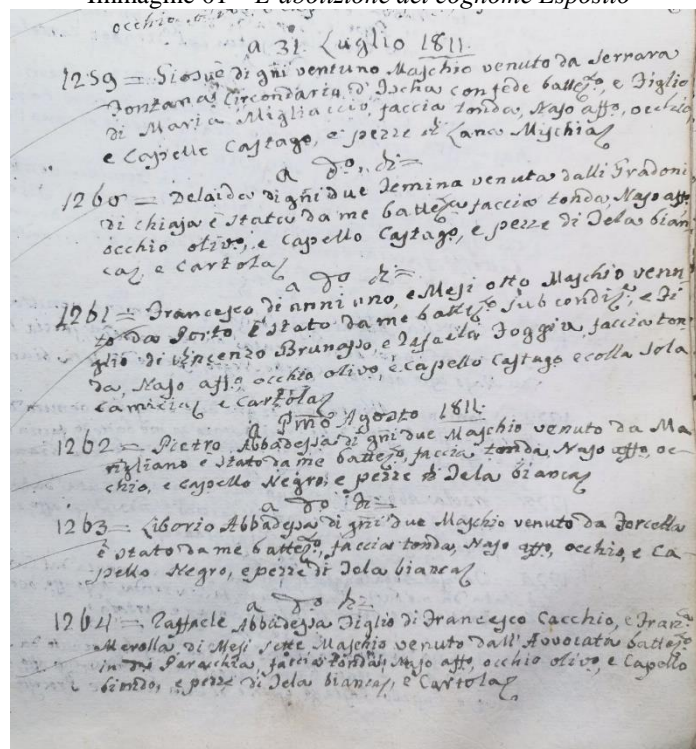 Immagine 01 – L'abolizione del cognome Esposito
occhio
a 31. Luglio 1811.
1259 = Giosuè di gni ventuno Maschio venuto da Serrara
Fontana Circondario d'Ischia con fede battezo, e Figlio
di Maria Migliaccio, faccia tonda, Naso affo, occhio,
e Capello Castago, e pezze di Lana Mischia
a do. di =
1260 = Delaide di gni due Femina venuta dalli Gradoni
di chiaja è stata da me batteza faccia tonda, Naso affo
occhio olivo, e Capello Castago, e pezze di Tela bian
ca, e Cartola
a do di =
1261 = Francesco di anni uno, e Mesi otto Maschio venu
to da Porto, è stato da me battezo sub condi, e Fi
glio di Vincenzo Brunaso, e Rafaela Foggia, faccia ton
da, Naso affo, occhio olivo, e Capello Castago e colla sola
Camicia, e Cartola
a Pmo Agosto 1811.
1262 = Pietro Abbadessa di gni due Maschio venuto da Ma
rigliano è stato da me battezo, faccia tonda, Naso affo, oc=
chio, e Capello Negro, e pezze di Tela bianca
a do di =
1263 = Liborio Abbadessa di gni due Maschio venuto da Forcella
è stato da me battezo, faccia tonda, Naso affo, occhio, e Ca
pello Negro, e pezze di Tela bianca
a do di =
1264 = Raffaele Abbadessa Figlio di Francesco Cacchio, e Franca
Merolla, di Mesi sette Maschio venuto dall'Avvocata battezo
in da Parochia, faccia tonda, Naso affo, occhio olivo, e Capello
biondo, e pezze di Tela bianca, e Cartola